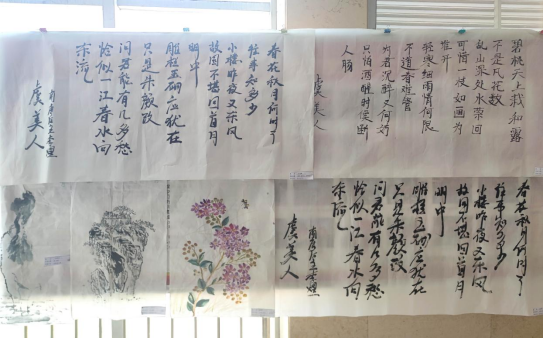 碧桃天上栽和露
不是凡花数
乱山深处水萦回
可惜一枝如画为
谁开
轻寒细雨情何限
不道春难管
为君沉醉又何妨
只怕酒醒时候断
人肠
虞美人
春花秋月何时了
往事知多少
小楼昨夜又东风
故国不堪回首月
明中
雕栏玉砌应犹在
只是朱颜改
问君能有几多愁
恰似一江春水向
东流
虞美人
春花秋月何时了
往事知多少
小楼昨夜又东风
故国不堪回首月
明中
雕栏玉砌应犹在
只是朱颜改
问君能有几多愁
恰似一江春水向
东流
虞美人